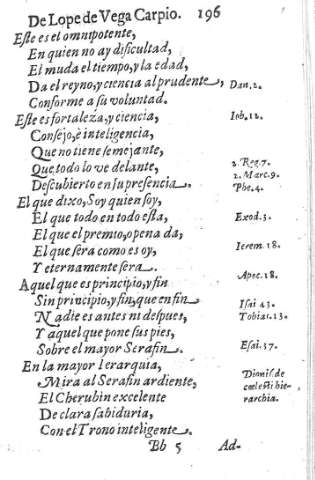 De Lope de Vega Carpio. 196
Este es el omnipotente,
En quien no ay dificultad,
El muda el tiempo, y la edad,
Da el reyno, y ciencia al prudente, Dan.2.
Conforme a su voluntad.
Este es fortaleza, y ciencia, Iob.12.
Consejo, è inteligencia,
Que no tiene semejante,
Que todo lo ve delante, 2.Reg.7.
2.Marc.9.
Descubierto en su presencia. Phe.4.
El que dixo, Soy quien soy,
El que todo en todo esta, Exod.3.
El que el premio, o pena da,
El que sera como es oy, Ierem.18.
Y eternamente sera.
Aquel que es principio, y fin Apoc.18.
Sin principio, y fin, que en fin Isai 43.
Nadie es antes ni despues, Tobiae.13.
Y aquel que pone sus pies,
Sobre el mayor Serafin. Esai.37.
En la mayor Ierarquia,
Mira al Serafin ardiente, Dionis. de
El Cherubin excelente cœlesti hie-
De clara sabiduria, rarchia.
Con el Trono inteligente.
Bb 5 Ad-